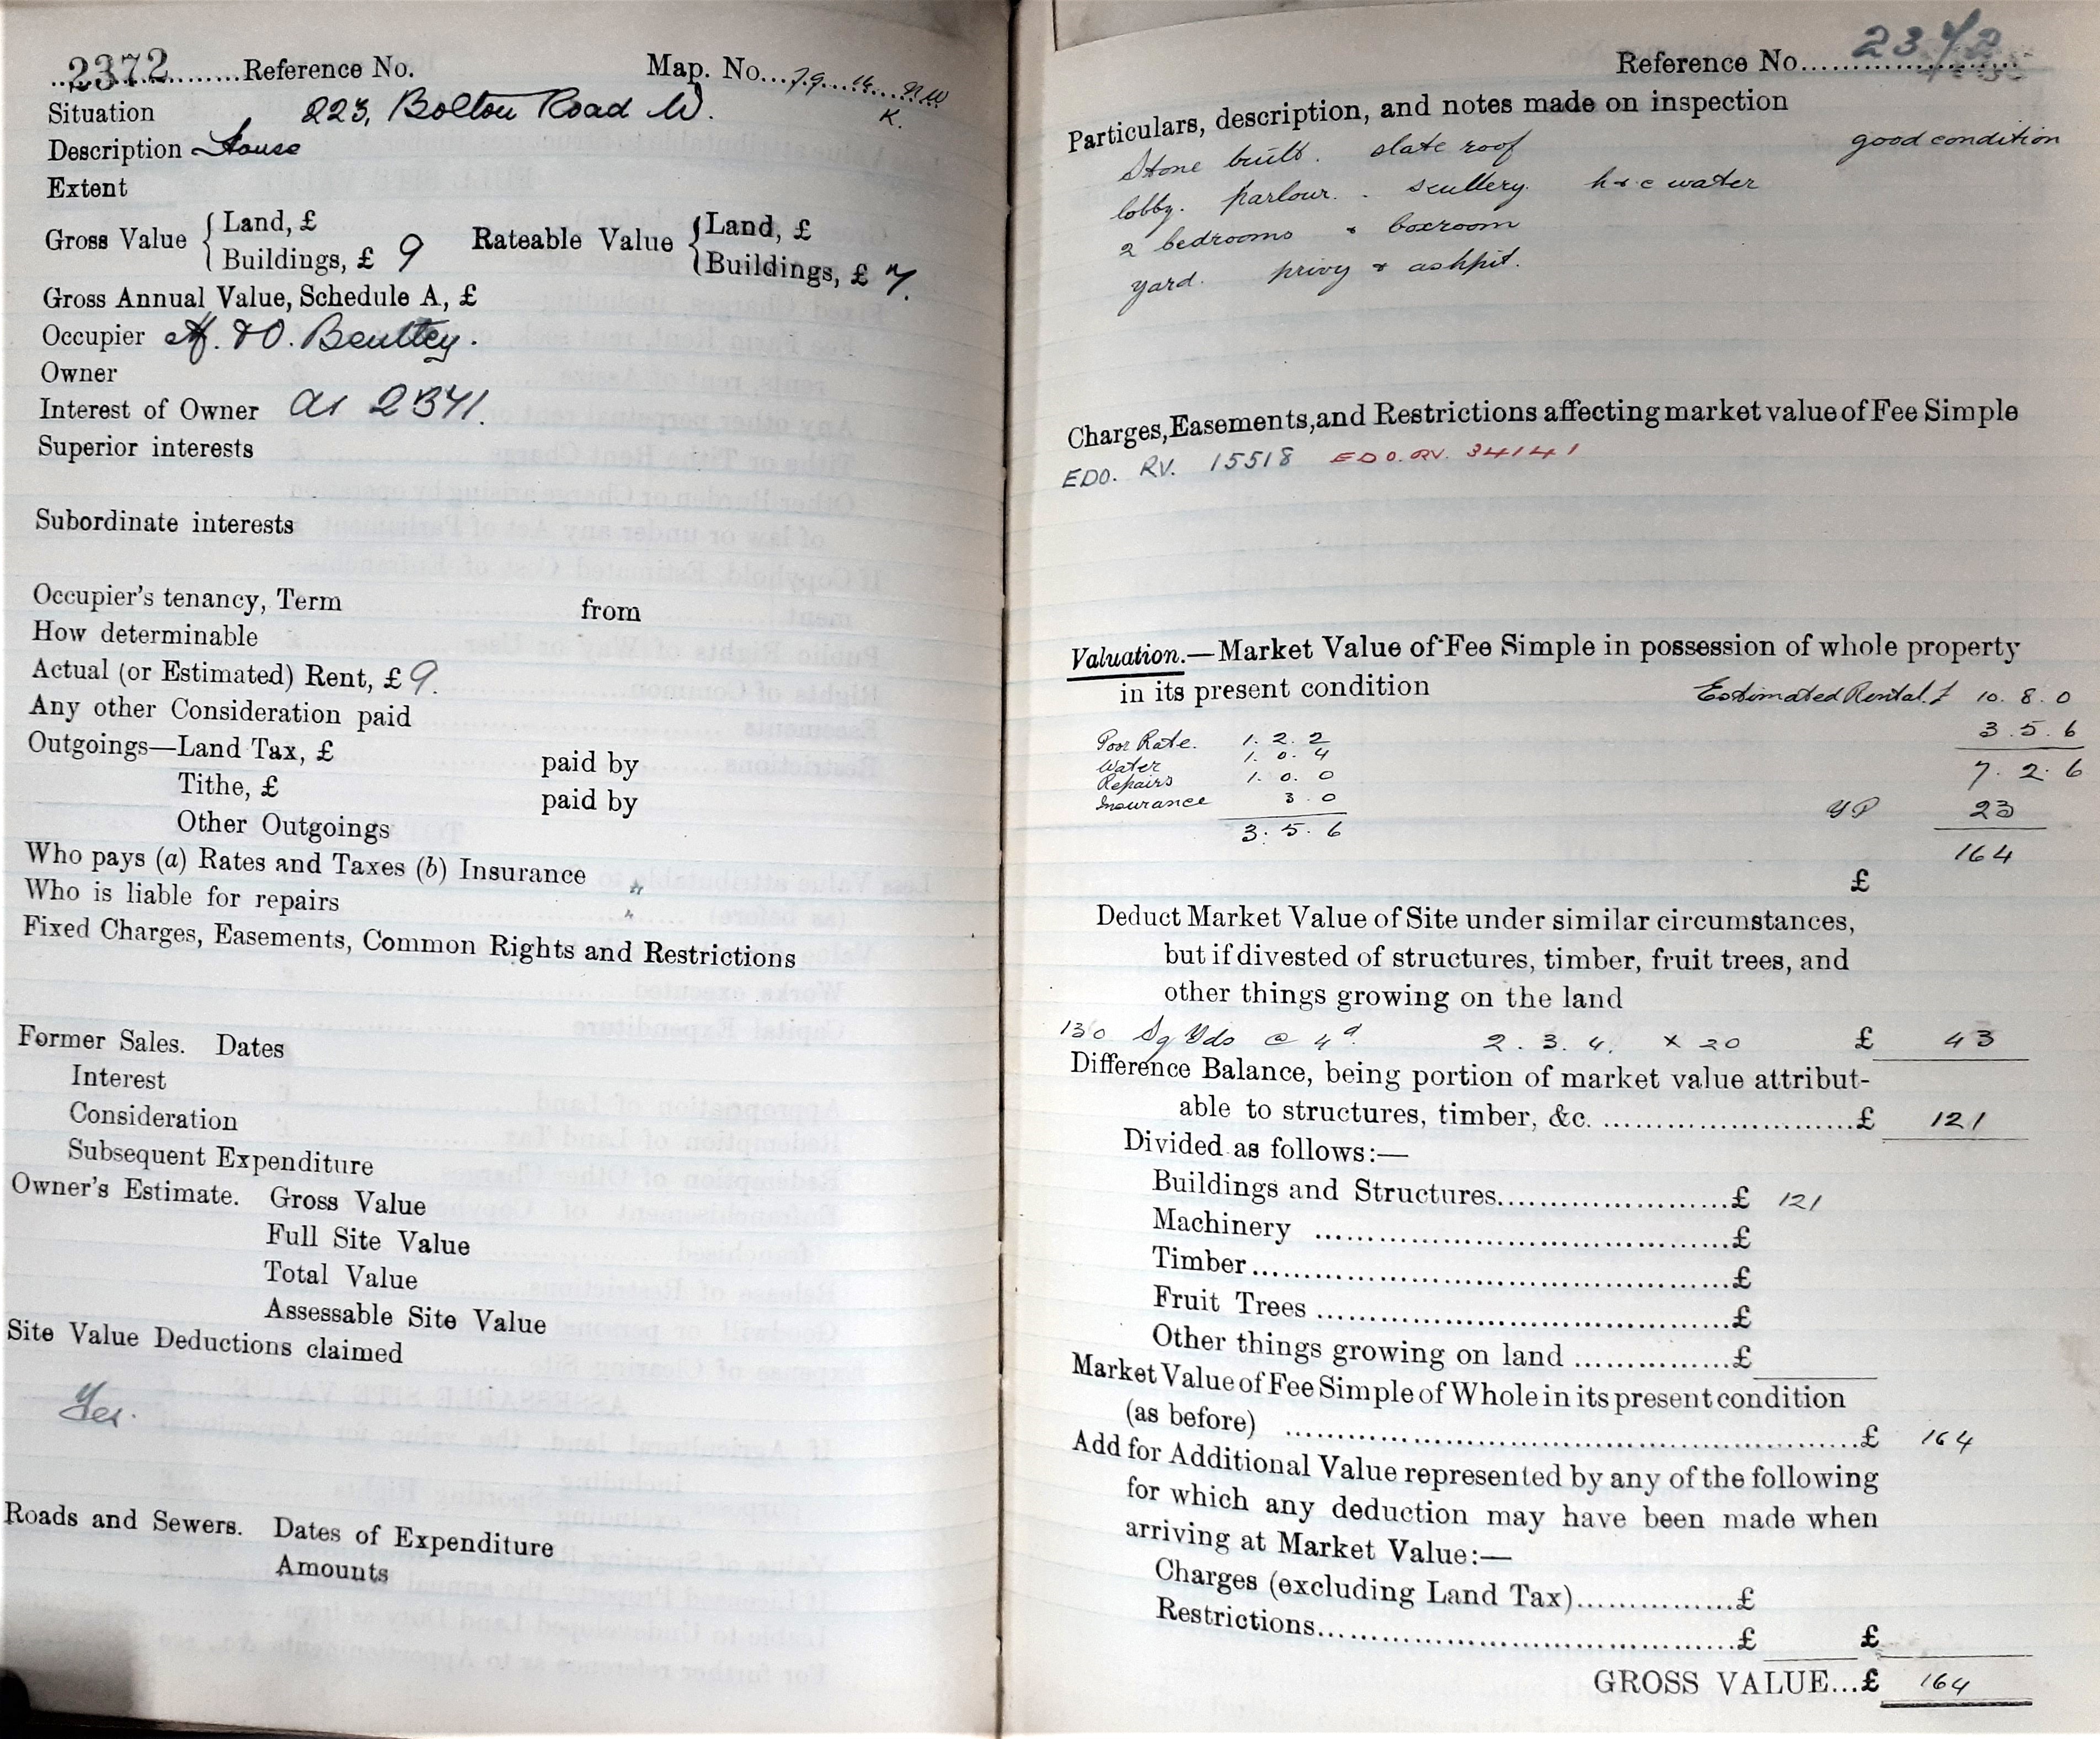 2372 Reference No. Map. No. 79. 14. NW
K.
Situation 223, Bolton Road W.
Description House
Extent
Gross Value { Land, £
Buildings, £ 9
Rateable Value { Land, £
Buildings, £ 7.
Gross Annual Value, Schedule A, £
Occupier & O. Bentley.
Owner
Interest of Owner as 2341.
Superior interests
Subordinate interests
Occupier's tenancy, Term from
How determinable
Actual (or Estimated) Rent, £ 9.
Any other Consideration paid
Outgoings—Land Tax, £ paid by
Tithe, £ paid by
Other Outgoings
Who pays (a) Rates and Taxes (b) Insurance "
Who is liable for repairs "
Fixed Charges, Easements, Common Rights and Restrictions
Former Sales. Dates
Interest
Consideration
Subsequent Expenditure
Owner's Estimate. Gross Value
Full Site Value
Total Value
Assessable Site Value
Site Value Deductions claimed
Yes.
Roads and Sewers. Dates of Expenditure
Amounts
Reference No. 2372
Particulars, description, and notes made on inspection
Stone built. slate roof good condition
lobby. parlour. scullery. h & c water
2 bedrooms & boxroom
yard. privy & ashpit.
Charges, Easements, and Restrictions affecting market value of Fee Simple
EDO. RV. 15518 EDO. RV. 34141
Valuation.—Market Value of Fee Simple in possession of whole property
in its present condition Estimated Rental £ 10. 8. 0
Poor Rate. 1. 2. 2 3. 5. 6
Water 1. 0. 4 7. 2. 6
Repairs 1. 0. 0
Insurance 3. 0 YP 23
3. 5. 6 164
£
Deduct Market Value of Site under similar circumstances,
but if divested of structures, timber, fruit trees, and
other things growing on the land
130 Sq Yds @ 4d. 2. 3. 4. x 20 £ 43
Difference Balance, being portion of market value attribut-
able to structures, timber, &c. £ 121
Divided as follows:—
Buildings and Structures £ 121
Machinery £
Timber £
Fruit Trees £
Other things growing on land £
Market Value of Fee Simple of Whole in its present condition
(as before) £ 164
Add for Additional Value represented by any of the following
for which any deduction may have been made when
arriving at Market Value:—
Charges (excluding Land Tax) £
Restrictions £ £
GROSS VALUE...£ 164